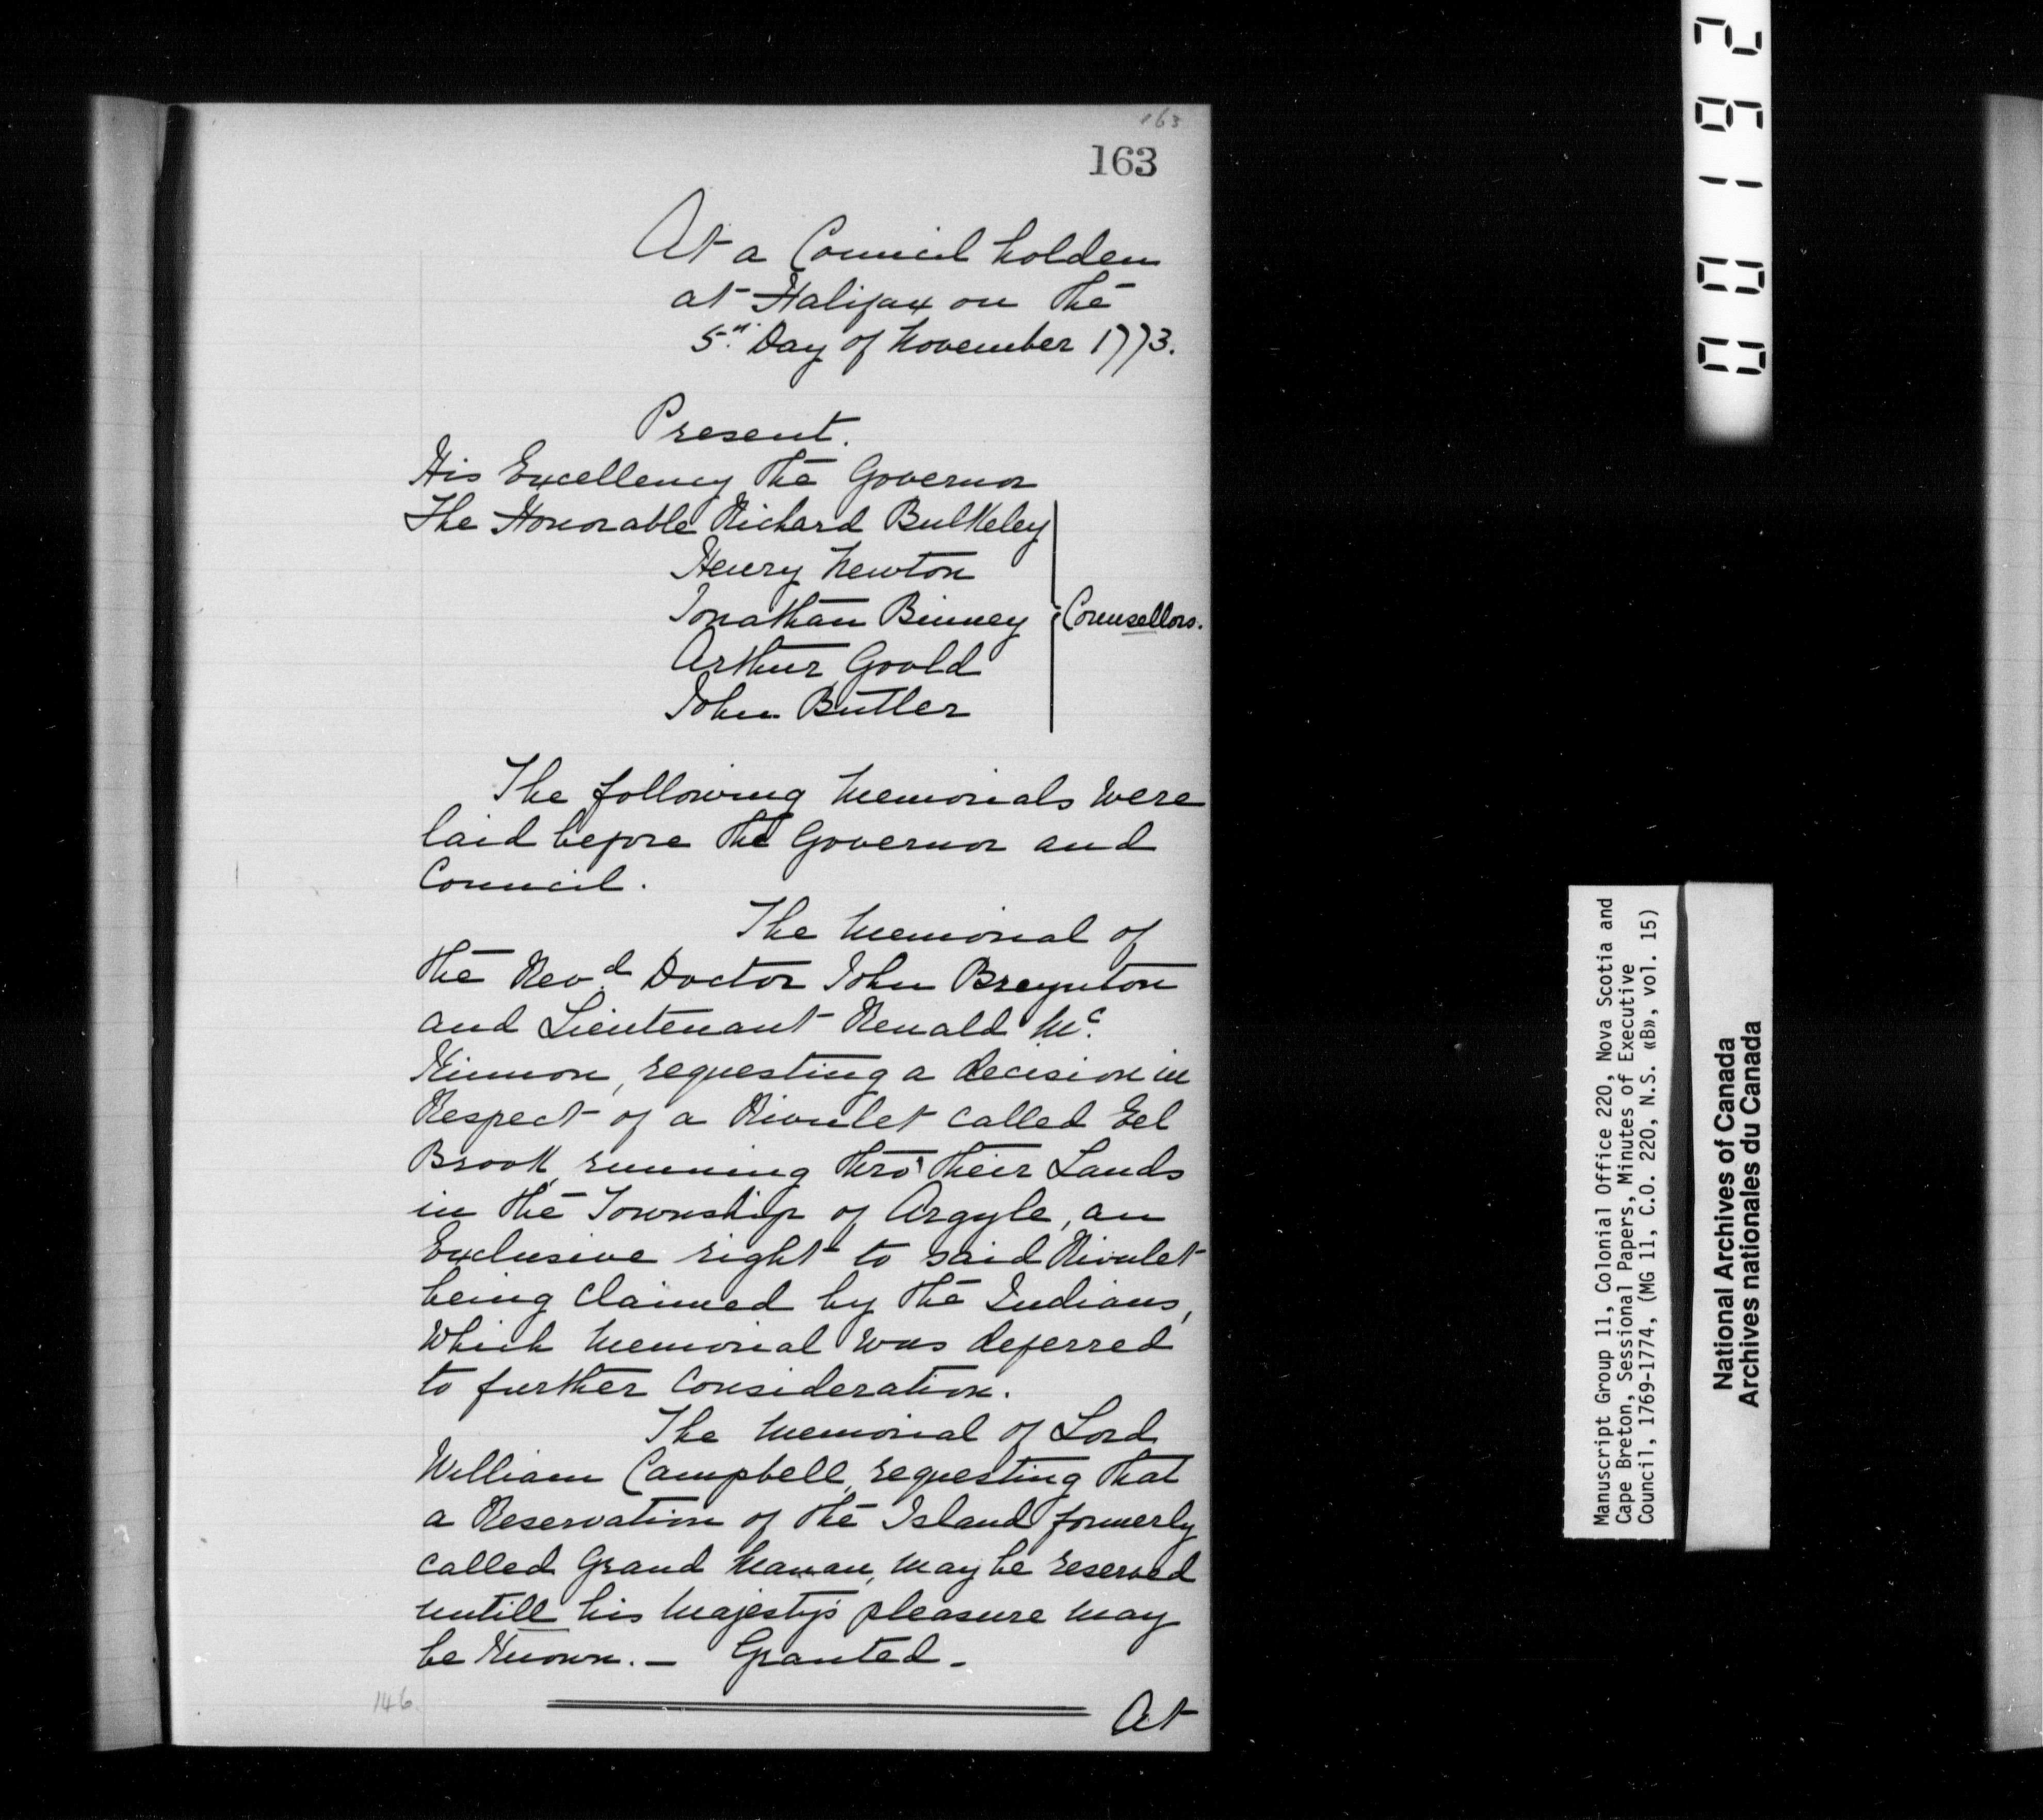 163
163
At a Council holden
at Halifax on the
5th. Day of November 1773.
Present.
His Excellency the Governor
The Honorable Richard Bulkeley
Henry Newton
Jonathan Binney
Counsellors.
Arthur Goold
John Butler
The following Memorials were
laid before the Governor and
Council.
The Memorial of
the Revd. Doctor John Breynton
and Lieutenant Renald Mc.
Kinnon, requesting a decision in
Respect of a Rivulet called Eel
Brook, running thro' their Lands
in the Township of Argyle, an
Exclusive right to said Rivulet
being claimed by the Indians,
Which Memorial was deferred
to further Consideration.
The Memorial of Lord
William Campbell, requesting that
a Reservation of the Island formerly
called Grand Manan, may be reserved
untill his Majesty's pleasure may
be Known. — Granted —
146
At
00192
Manuscript Group 11, Colonial Office 220, Nova Scotia and
Cape Breton, Sessional Papers, Minutes of Executive
Council, 1769-1774, (MG 11, C.O. 220, N.S. «B», vol. 15)
National Archives of Canada
Archives nationales du Canada